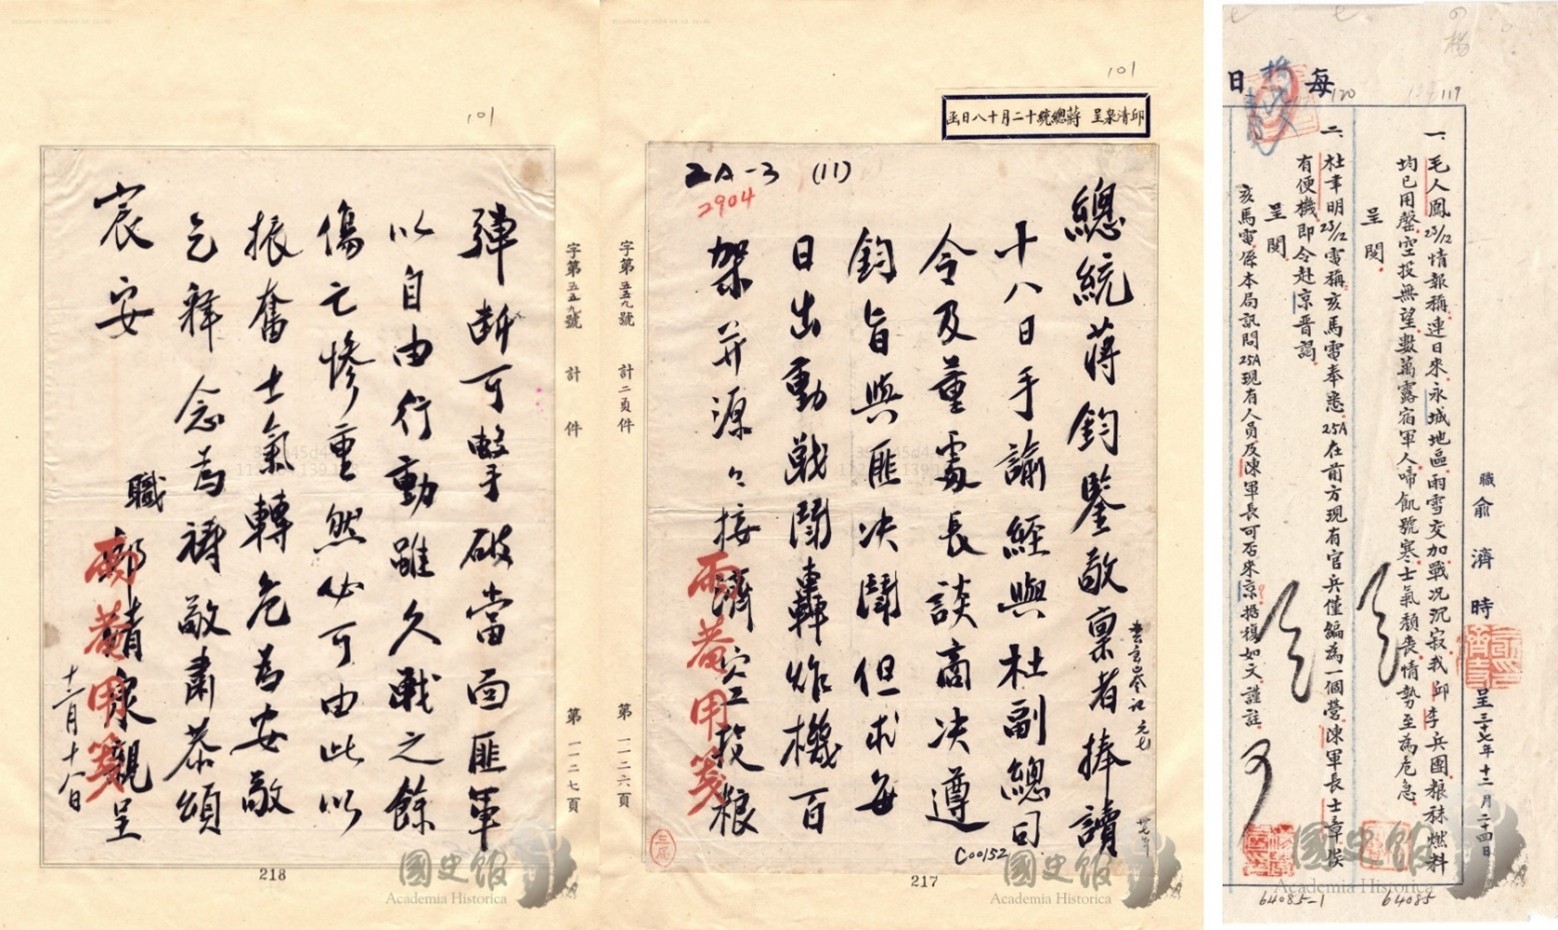 101
邱清泉呈 蔣總統十二月十八日函
2A-3 (11)
2904
總統蔣鈞鑒敬稟者捧讀
十八日手諭經與杜副總司
令及董處長談商決遵
鈞旨與匪決鬪但求每
日出動戰鬪轟炸機百
架并源々接濟空投粮
雨菴用箋
C00152
字第五五九號 計二頁件 第一一二六頁
217
國史館
Academia Historica
101
彈斷可擊破當面匪軍
以自由行動雖久戰之餘
傷亡慘重然必可由此以
振奮士氣轉危為安敬
乞釋念為禱敬肅恭頌
宸安
職 邱清泉親呈
十二月十八日
雨菴用箋
字第五五九號 計 件 第一一二七頁
218
國史館
Academia Historica
每日
119
120
職 俞濟時 呈 三十七年十二月二十四日
一、毛人鳳23/12情報稱連日來永城地區雨雪交加戰況沉寂我邱李兵團糧秣燃料
均已用罄空投無望數萬露宿軍人啼飢號寒士氣頹喪情勢至為危急
呈閱
二、杜聿明23/12電稱亥馬電奉悉25A在前方現有官兵僅編為一個營陳軍長士章俟
有便機即令赴京晉謁
呈閱
亥馬電係本局訊問25A現有人員及陳軍長可否來京揚復如文謹註
64085
64085-1
國史館
Academia Historica